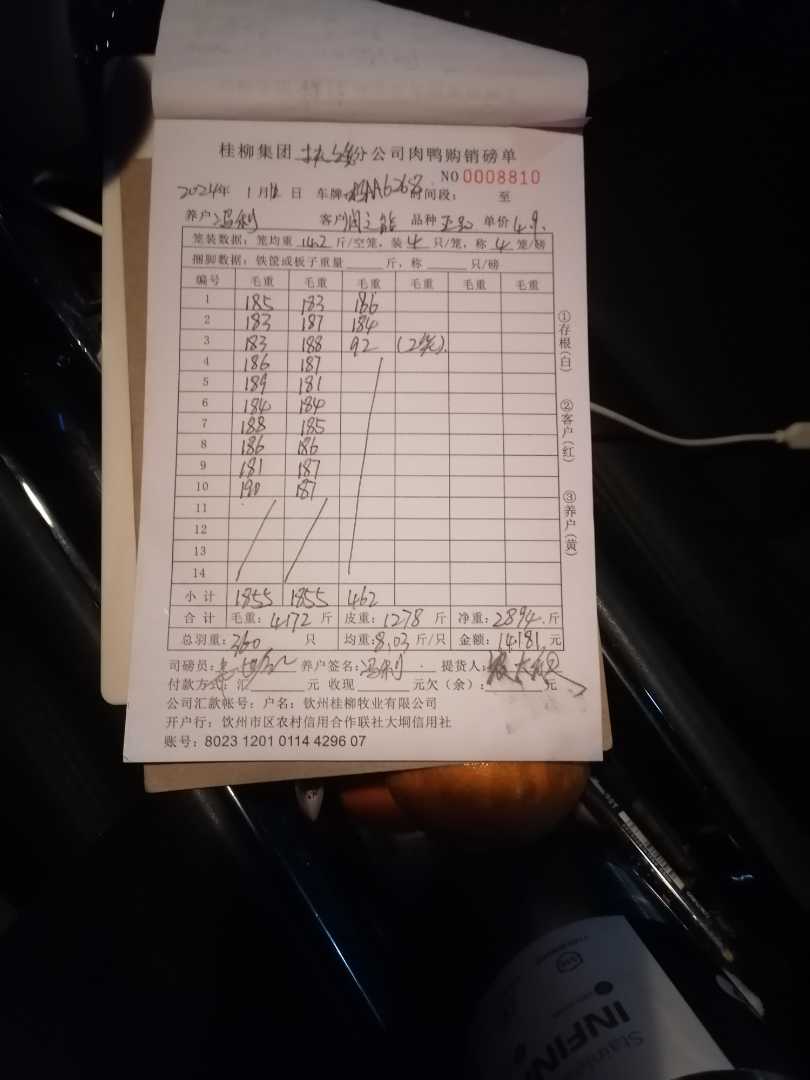 桂柳集团 分公司肉鸭购销磅单
NO 0008810
2024年 1月 日 车牌: 6268 时间段: 至
养户 冯利 客户 品种 单价 4.9
笼装数据: 笼均重 14.2 斤/空笼, 装 4 只/笼, 称 4 笼/磅
捆脚数据: 铁筐或板子重量 斤, 称 只/磅
编号 毛重 毛重 毛重 毛重 毛重 毛重
1 185 183 186
2 183 187 184
3 183 188 92 (2笼)
4 186 187
5 189 181
6 184 184
7 188 185
8 186 186
9 181 187
10 190 187
11
12
13
14
小计 1855 1855 462
合计 毛重: 4172 斤 皮重: 1278 斤 净重: 2894 斤
总羽重: 360 只 均重: 8.03 斤/只 金额: 14181 元
司磅员: 养户签名: 冯利 提货人:
付款方式: 汇 元 收现 元欠(余): 元
公司汇款帐号: 户名: 钦州桂柳牧业有限公司
开户行: 钦州市区农村信用合作联社大垌信用社
账号: 8023 1201 0114 4296 07
①存根(白)
②客户(红)
③养户(黄)
INFIN